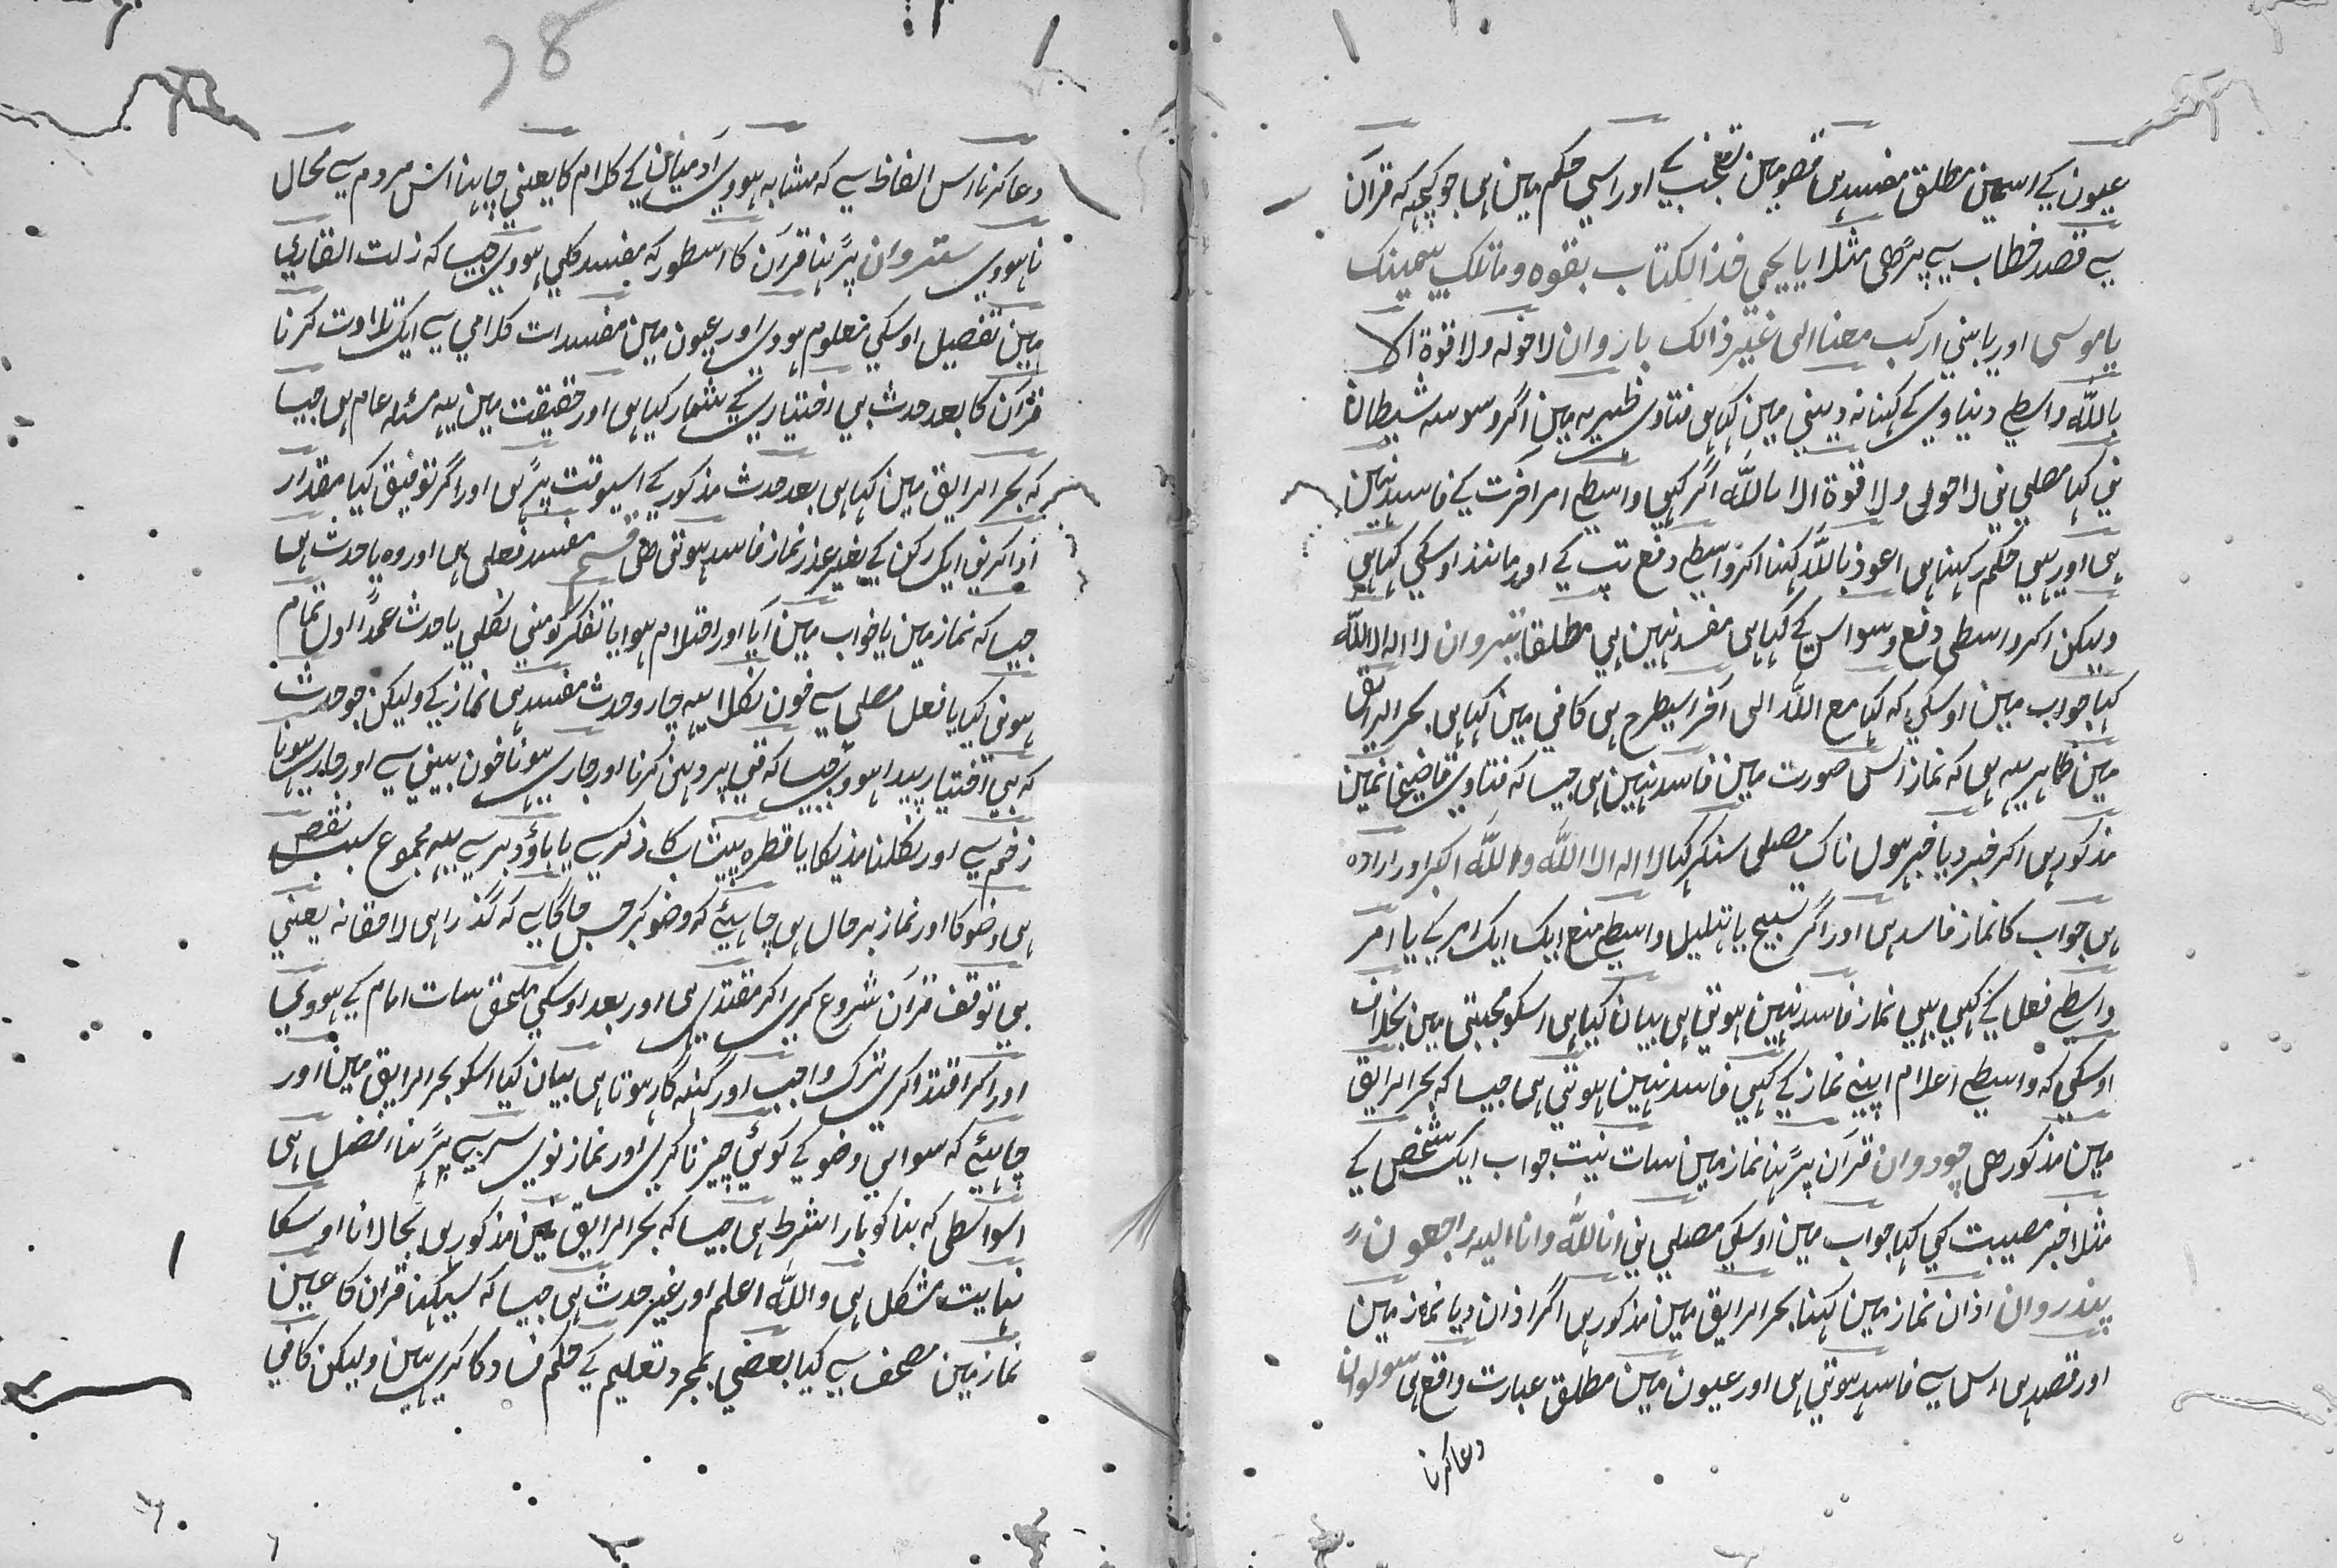 عیون کے اسمین مطلق مفسد ہی قصو مین تعجب کے اور اسی حکم مین ہی جو کچہہ کہ قرآن
سے قصد خطاب سے پڑہی مثلا یا یحیی خذ الکتاب بقوہ وماتلک بیمینک
یا موسی اور یا بنی ارکب معنا الی غیر ذالک باروان لا حولہ ولا قوۃ الا
باللّٰه واسطے دنیاوی کے کہنا نہ دینی مین کہا ہی فتاوی ظہیریہ مین اگر وسوسہ شیطان
نی کہا مصلی نی لا حول ولا قوۃ الا باللّٰه اگر کہی واسطے امر آخرت کے فاسد نہین
ہی اور یہی حکم رکہتا ہی اعوذ باللّٰه کہنا اکر واسطے دفع تپ کے اور مانند اوسکی کہا ہی
ولیکن اکر واسطی دفع وسواس کے کہا ہی مفسد نہین ہی مطلقا تیروان لا الہ الا اللّٰه
کہا جواب مین اوسکی کہ کہا مع اللّٰه الی آخر اسیطرح ہی کافی مین کہا ہی بحر الرایق
مین ظاہر یہہ ہی کہ نماز اس صورت مین فاسد نہین ہی جیسا کہ فتاوی قاضیخانمین
مذکور ہی اکر خبر دیا خبر ہول ناک مصلی سنکر کہا لا الہ الا اللّٰه واللّٰه اکبر اور ارادہ
ہی جواب کا نماز فاسد ہی اور اگر تسبیح یا تہلیل واسطے منع ایک ایک امر کے یا امر
واسطے فعل کے کہی بہی نماز فاسد نہین ہوتی ہی بیان کیا ہی اسکو مجتبی مین بخلاف
اوسکی کہ واسطے اعلام اپنے نماز کے کہی فاسد نہین ہوتی ہی جیسا کہ بحر الرایق
مین مذکور ہی چودوان قرآن پڑہنا نماز مین سات نیت جواب ایک شخص کے
مثلا خبر مصیبت کی کہا جواب مین اوسکی مصلی نی انا للّٰه وانا الیہ راجعون
پندروان اذان نماز مین کہنا بحر الرایق مین مذکور ہی اگر اذان دیا نماز مین
اور قصد ہی اس سے فاسد ہوتی ہی اور عیون مین مطلق عبارت واقع ہی سولوان
دعا کرنا
78
دعا کرنا اس الفاظ سے کہ مشابہ ہووی آدمیان کے کلام کا یعنی چاہنا اس مردم سے محال
نا ہووی ستروان پڑہنا قرآن کا اسطور کہ مفسد کلی ہووی جیسا کہ زلت القاری
مین تفصیل اوسکی معلوم ہووی اور عیون مین مفسدات کلامی سے ایک تلاوت کرنا
قرآن کا بعد حدث بی اختیاری کے شمار کیا ہی اور حقیقت مین یہہ مسئلہ عام ہی جیسا
کہ بحر الرایق مین کہا ہی بعد حدث مذکور کے اسیوقت پڑہی اور اگر توفیق کیا مقدار
ادا کرنی ایک رکن کے بغیر عذر نماز فاسد ہوتی ہی قسم مفسد فعلی ہی اور وہ یا حدث ہی
جیسا کہ نماز مین یا خواب مین آیا اور احتلام ہوا یا تفکر کو منی نکلی یا حدث عمداً اول تمام
ہونی کیا یا فعل مصلی سے خون نکلا یہہ چار وحدث مفسد ہی نماز کے ولیکن جو حدث
کہ بی اختیار پیدا ہووی جیسا کہ قی پر دہن کرنا اور جاری ہونا خون بینی سے اور جاری ہونا
زخم سے اور نکلنا مذیکا یا قطرہ پیشاب کا ذکر سے یا باؤ دبر سے یہہ مجموع سبب نقص
ہی وضو کا اور نماز بر حال ہی چاہئے کہ وضو کر جس جاگا سے کہ گذرا ہی لاحقانہ یعنی
بی توقف قرآن شروع کری اکر مقتدی ہی اور بعد اوسکی ملحق سات امام کے ہووی
اور اکر اقتدا کری ترک واجب اور گنہگار ہوتا ہی بیان کیا اسکو بحر الرایق مین اور
چاہئے کہ سوای وضو کے کوئی چیز نا کری اور نماز نوی سر سے پڑہنا افضل ہی
اسواسطی کہ بنا کو بارا شرط ہی جیسا کہ بحر الرایق مین مذکور ہی بجا لانا اوسکا
نہایت مشکل ہی واللّٰه اعلم اور غیر حدث ہی جیسا کہ سیکہنا قران کا عین
نماز مین مصحف سے کیا بعضی بمجرد تعلیم کے حکم فساد کا کری ہین ولیکن کافی